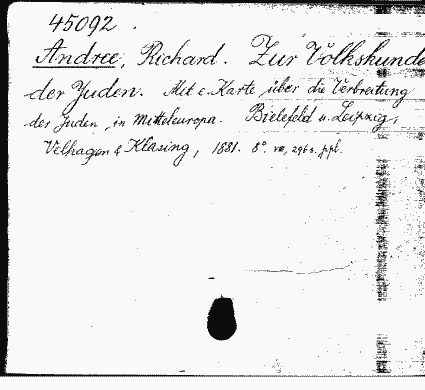 45092.
Andree, Richard. Zur Volkskunde
der Juden. Mit e. Karte über die Verbreitung
der Juden in Mitteleuropa. Bielefeld u. Leipzig,
Velhagen & Klasing, 1881. 8°. VIII, 296 s. ppl.